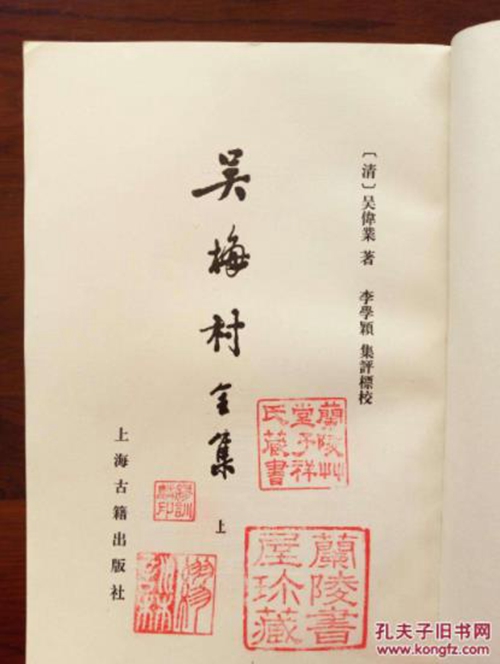 〔清〕吴偉業 著 李學穎 集評標校
吴梅村全集
上
上海古籍出版社
蘭陵艸
堂子祥
氏藏書
蘭陵書
屋珎藏
孔夫子旧书网
www.kongfz.com